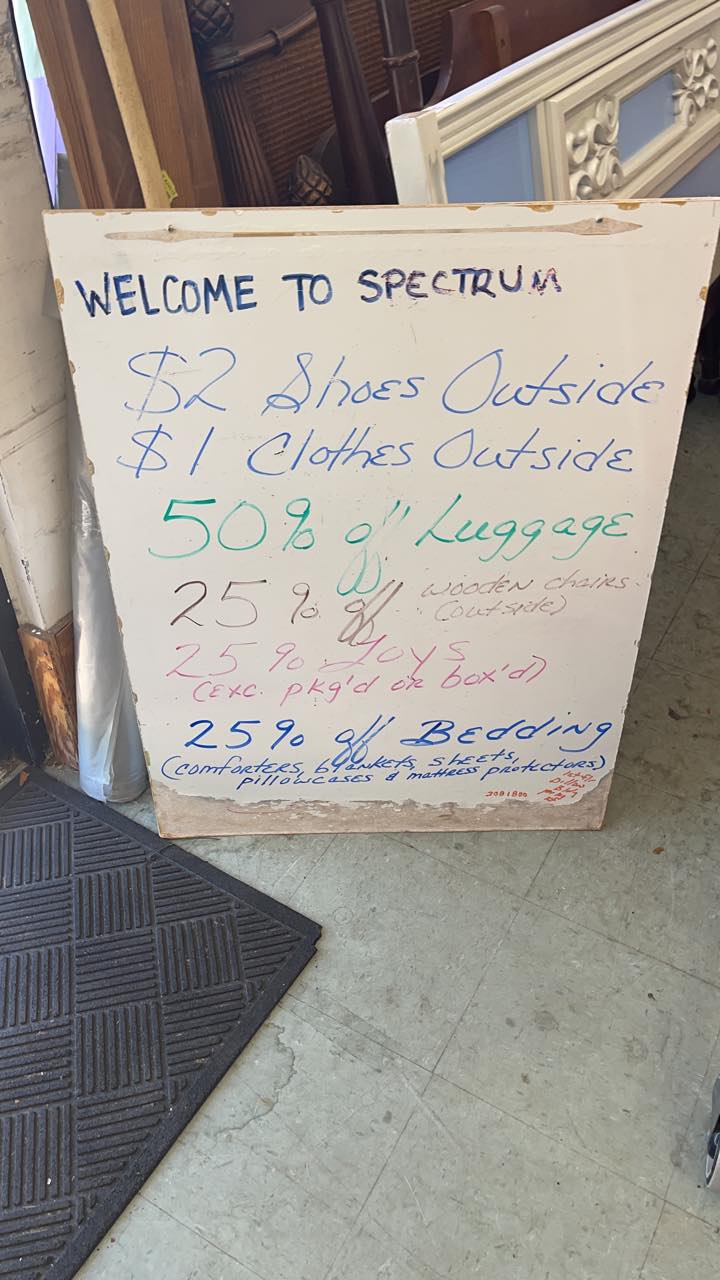 WELCOME TO SPECTRUM
$2 Shoes Outside
$1 Clothes Outside
50% off Luggage
25% off wooden chairs
(outside)
25% Toys
(exc. pkg'd or box'd)
25% off Bedding
(comforters, blankets, sheets,
pillowcases & mattress protectors)